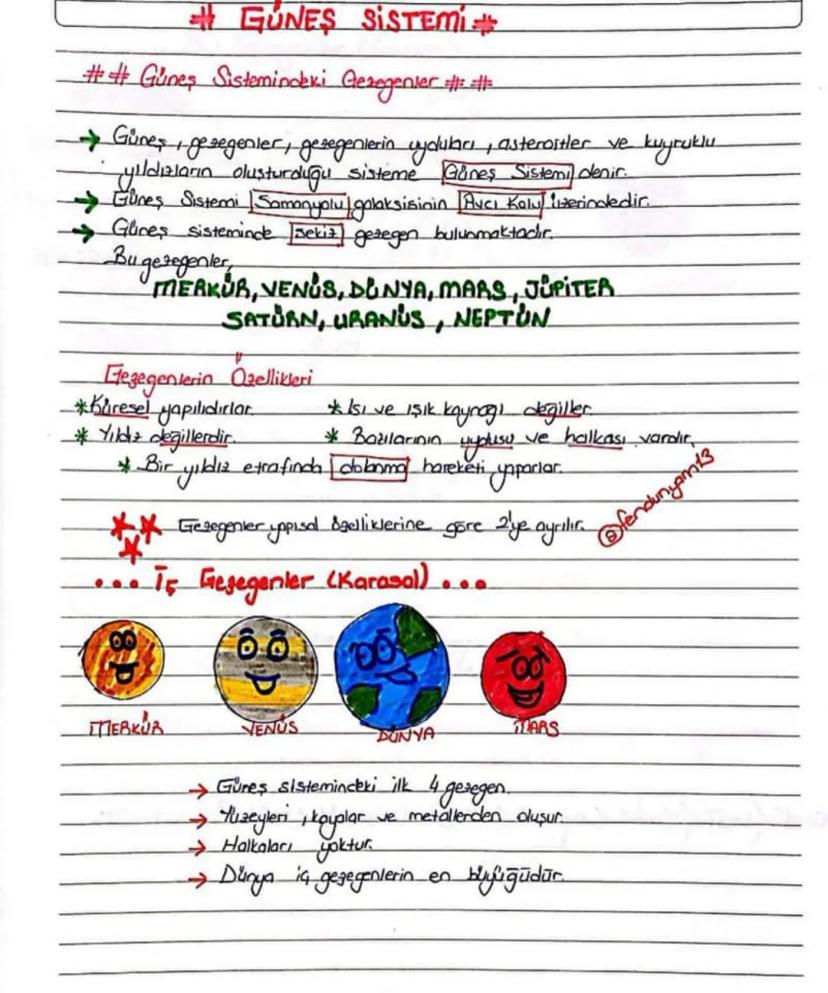 # GÜNEŞ SİSTEMİ #
## Güneş Sistemindeki Gezegenler ##
→ Güneş, gezegenler, gezegenlerin uyduları, asteroitler ve kuyruklu
yıldızların oluşturduğu sisteme Güneş Sistemi denir.
→ Güneş Sistemi Samanyolu galaksisinin Avcı Kolu üzerindedir.
→ Güneş sisteminde sekiz gezegen bulunmaktadır.
Bu gezegenler,
MERKÜR, VENÜS, DÜNYA, MARS, JÜPİTER
SATÜRN, URANÜS, NEPTÜN
Gezegenlerin Özellikleri
* Küresel yapılıdırlar. * Isı ve ışık kaynağı değiller.
* Yıldız değillerdir. * Bazılarının uydusu ve halkası vardır.
* Bir yıldız etrafında dolanma hareketi yaparlar.
@fendunyam13
Gezegenler yapısal özelliklerine göre 2'ye ayrılır.
... İç Gezegenler (Karasal) ...
MERKÜR VENÜS DÜNYA MARS
→ Güneş sistemindeki ilk 4 gezegen.
→ Yüzeyleri, kayalar ve metallerden oluşur.
→ Halkaları yoktur.
→ Dünya iç gezegenlerin en büyüğüdür.